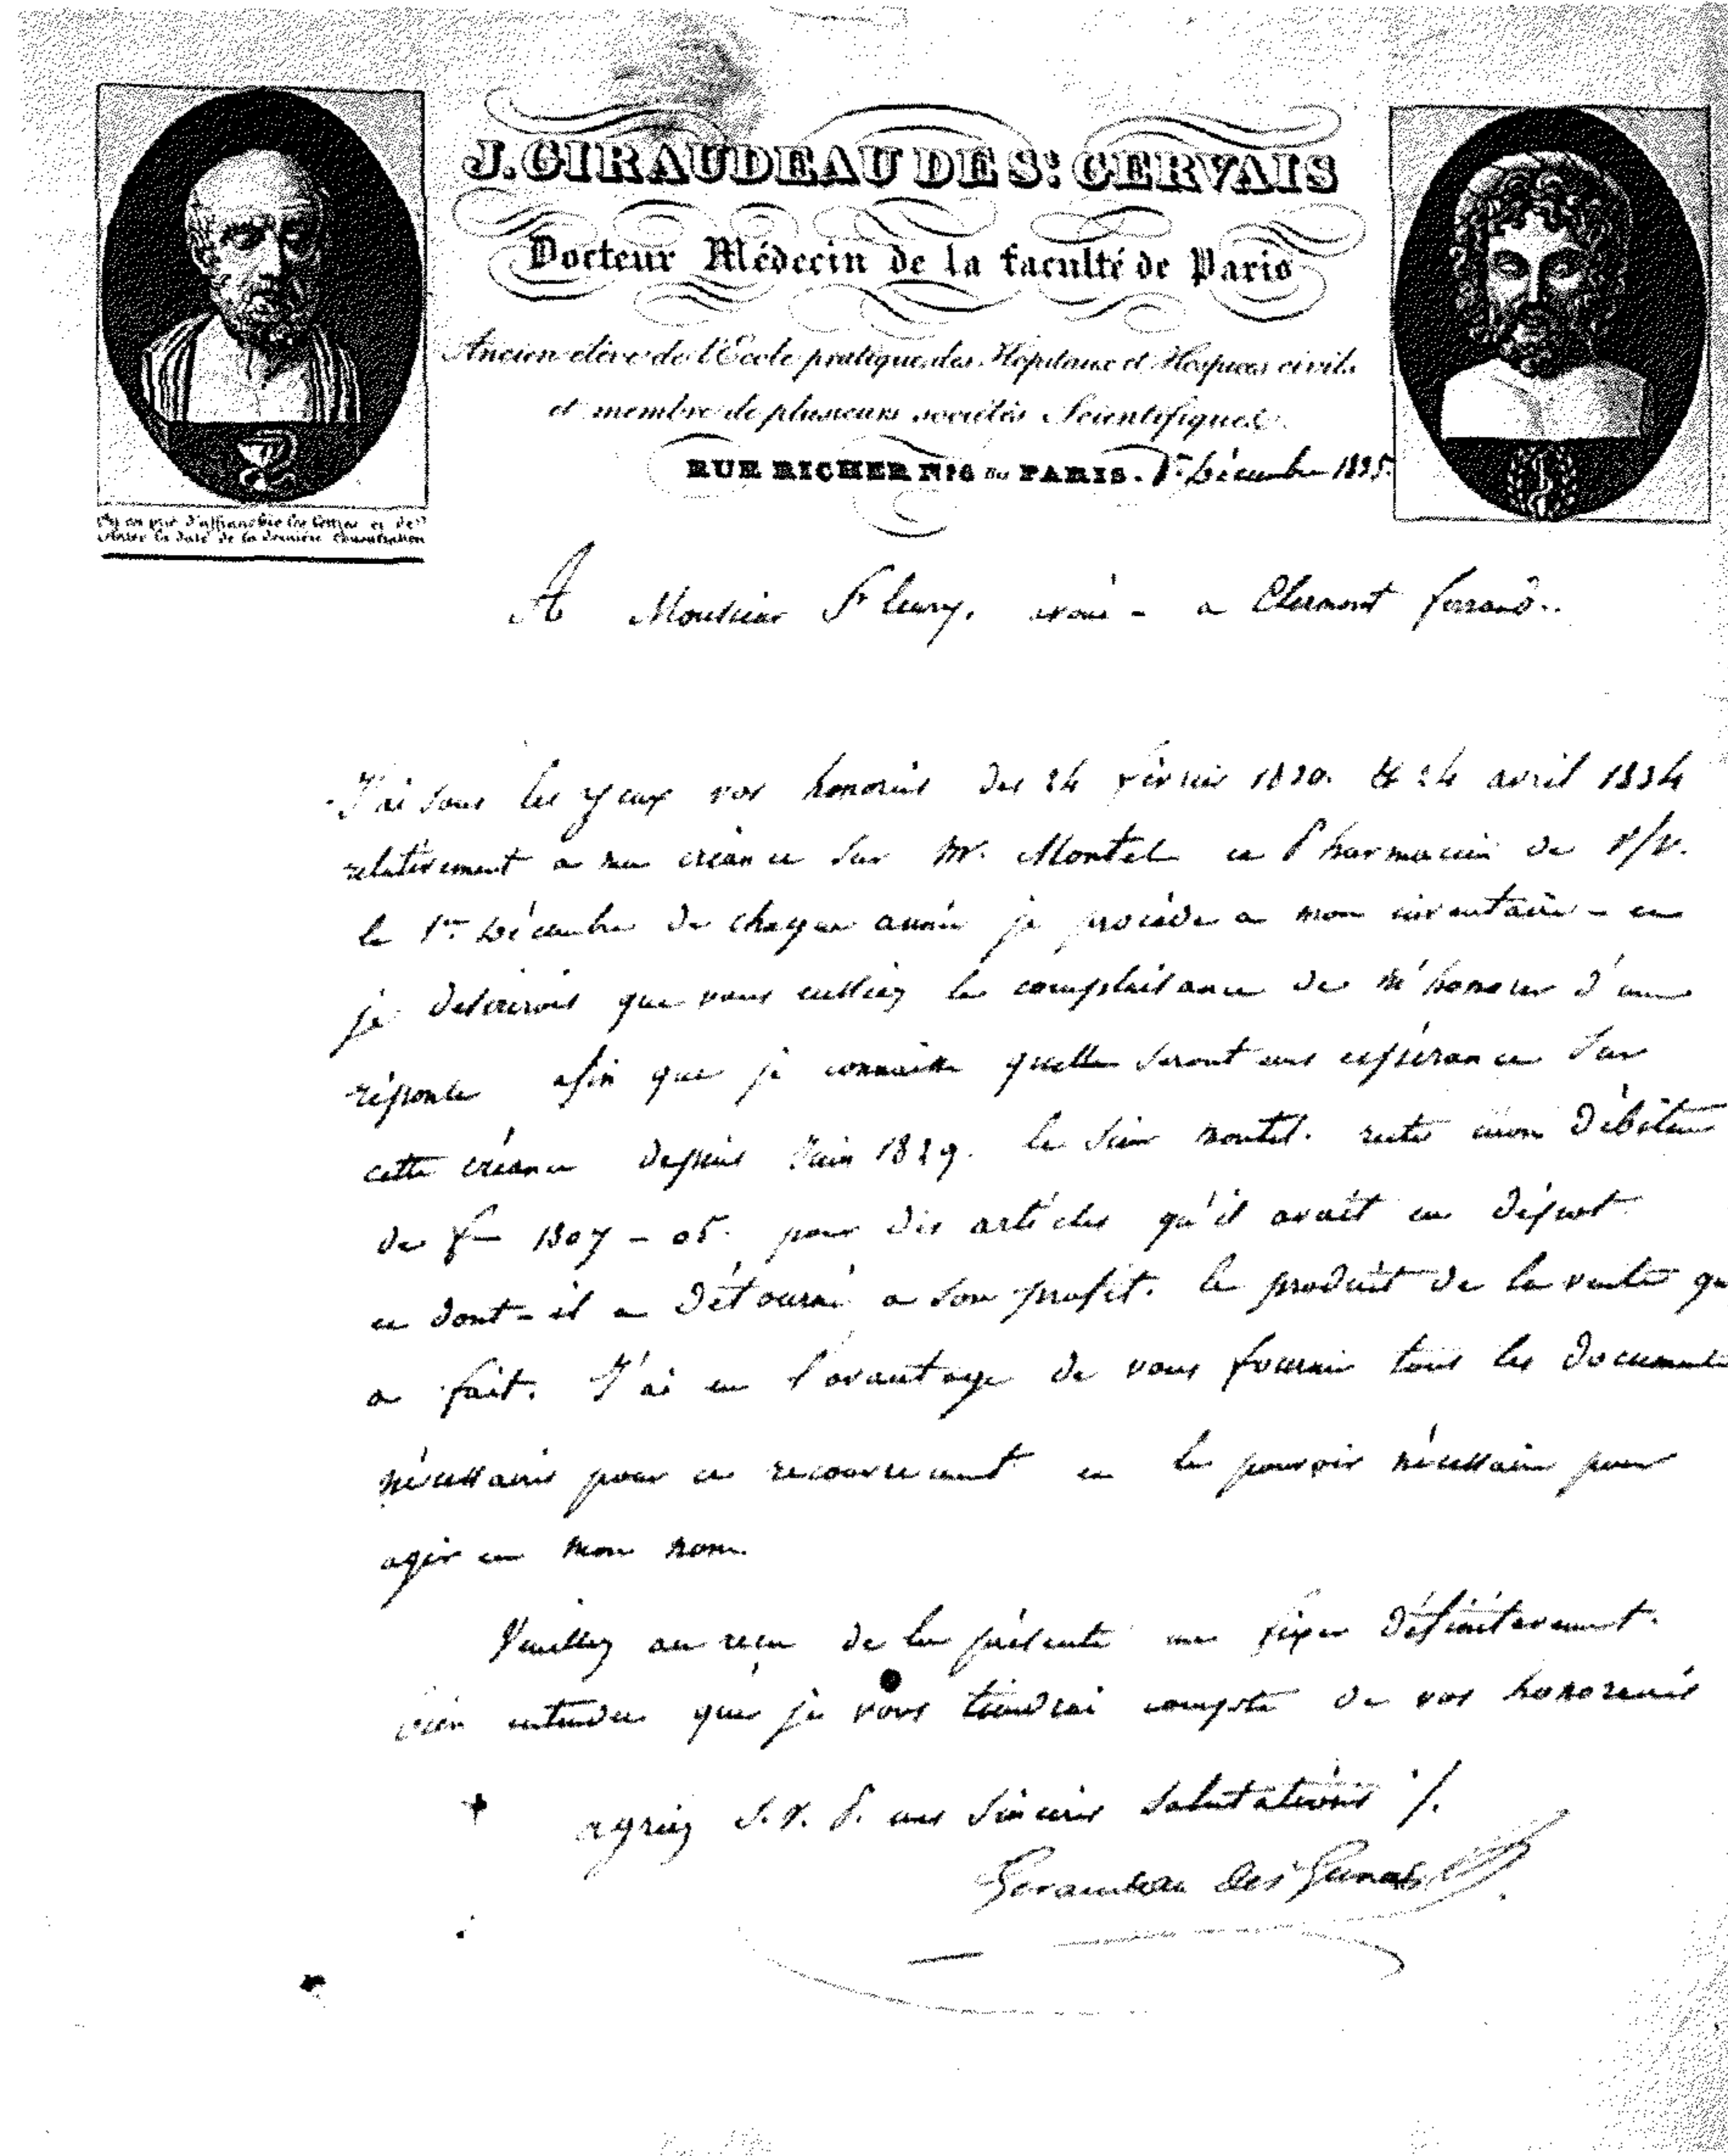 J. GIRAUDEAU DE St. GERVAIS
Docteur Médecin de la faculté de Paris
Ancien élève de l'Ecole pratique, des Hôpitaux et Hospices civils
et membre de plusieurs sociétés Scientifiques.
RUE RICHER Nº 6 PARIS. 1er Décembre 1835.
On est prié d'affranchir les lettres et de
relater la date de la dernière Consultation
A Monsieur Fleury, avoué - a Clermont ferrand..
J'ai sous les yeux vos honorées des 24 février 1830. & 24 avril 1834
relativement a ma créance sur Mr. Montel ex Pharmacien de V/V.
le 1er Décembre de chaque année je procède a mon inventaire - et
je desirerois que vous eussiez la complaisance de m'honorer d'une
réponse afin que je connaisse quelle seront mes espérance sur
cette créance depuis Juin 1829. le sieur montel. reste mon Débiteur
de f 1307 - 05. pour des articles qu'il avait en dépot
et dont - il a Détourné a son profit. le produit de la vente qu
a fait. J'ai eu l'avantage de vous fournir tous les document
nécessaires pour ce recouvrement et le pouvoir nécessaire pour
agir en mon nom.
Veuillez au reçu de la présente me fixer Définitivement.
bien entendu que je vous tiendrai compte de vos honoraires
agréez S. V. P. mes sincères salutations ./.
Giraudeau de St Gervais